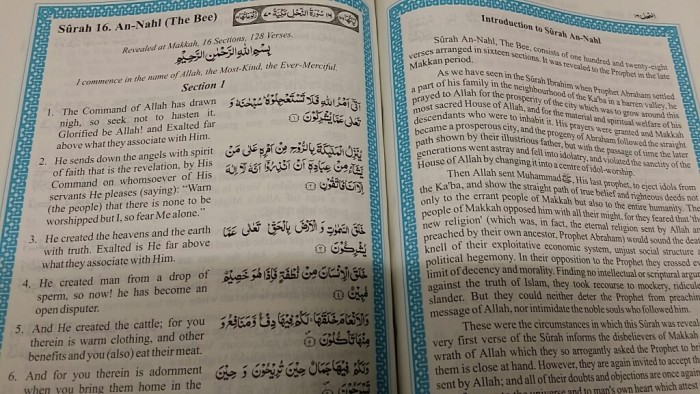 Sûrah 16. An-Nahl (The Bee)
Revealed at Makkah, 16 Sections, 128 Verses.
بِسْمِ اللّٰهِ الرَّحْمٰنِ الرَّحِيْمِ
I commence in the name of Allah, the Most-Kind, the Ever-Merciful.
Section 1
1. The Command of Allah has drawn
nigh, so seek not to hasten it.
Glorified be Allah! and Exalted far
above what they associate with Him.
اَتٰۤى اَمْرُ اللّٰهِ فَلَا تَسْتَعْجِلُوْهُ سُبْحٰنَهٗ وَ
تَعٰلٰى عَمَّا يُشْرِكُوْنَ
2. He sends down the angels with spirit
of faith that is the revelation, by His
Command on whomsoever of His
servants He pleases (saying): “Warn
(the people) that there is none to be
worshipped but I, so fear Me alone.”
يُنَزِّلُ الْمَلٰٓئِكَةَ بِالرُّوْحِ مِنْ اَمْرِهٖ عَلٰى مَنْ
يَّشَآءُ مِنْ عِبَادِهٖۤ اَنْ اَنْذِرُوْۤا اَنَّهٗ لَاۤ اِلٰهَ
اِلَّاۤ اَنَا فَاتَّقُوْنِ
3. He created the heavens and the earth
with truth. Exalted is He far above
what they associate with Him.
خَلَقَ السَّمٰوٰتِ وَ الْاَرْضَ بِالْحَقِّ تَعٰلٰى عَمَّا
يُشْرِكُوْنَ
4. He created man from a drop of
sperm, so now! he has become an
open disputer.
خَلَقَ الْاِنْسَانَ مِنْ نُّطْفَةٍ فَاِذَا هُوَ خَصِيْمٌ
مُّبِيْنٌ
5. And He created the cattle; for you
therein is warm clothing, and other
benefits and you (also) eat their meat.
وَالْاَنْعَامَ خَلَقَهَا لَكُمْ فِيْهَا دِفْءٌ وَّ مَنَافِعُ وَ
مِنْهَا تَاْكُلُوْنَ
6. And for you therein is adornment
when you bring them home in the
وَلَكُمْ فِيْهَا جَمَالٌ حِيْنَ تُرِيْحُوْنَ وَ حِيْنَ
Introduction to Sûrah An-Nahl
Sûrah An-Nahl, The Bee, consists of one hundred and twenty-eight
verses arranged in sixteen sections. It was revealed to the Prophet in the late
Makkan period.
As we have seen in the Sûrah Ibrahim when Prophet Abraham settled
a part of his family in the neighbourhood of the Ka'ba in a barren valley, he
prayed to Allah for the prosperity of the city which was to grow around this
most sacred House of Allah, and for the material and spiritual welfare of his
descendants who were to inhabit it. His prayers were granted and Makkah
became a prosperous city, and the progeny of Abraham followed the straight
path shown by their illustrious father, but with the passage of time the later
generations went astray and fell into idolatry, and violated the sanctity of the
House of Allah by changing it into a centre of idol-worship.
Then Allah sent Muhammad ﷺ, His last prophet, to eject idols from
the Ka'ba, and show the straight path of true belief and righteous deeds not
only to the errant people of Makkah but also to the entire humanity. The
people of Makkah opposed him with all their might, for they feared that this
new religion' (which was, in fact, the eternal religion sent by Allah an
preached by their own ancestor, Prophet Abraham) would sound the dea
knell of their exploitative economic system, unjust social structure
political hegemony. In their opposition to the Prophet they crossed ev
limit of decency and morality. Finding no intellectual or scriptural argu
against the truth of Islam, they took recourse to mockery, ridicule
slander. But they could neither deter the Prophet from preachi
message of Allah, nor intimidate the noble souls who followed him.
These were the circumstances in which this Sûrah was reveal
very first verse of the Sûrah informs the disbelievers of Makkah
wrath of Allah which they so arrogantly asked the Prophet to bri
them is close at hand. However, they are again invited to accept th
sent by Allah; and all of their doubts and objections are once again
universe and to man's own heart which attest